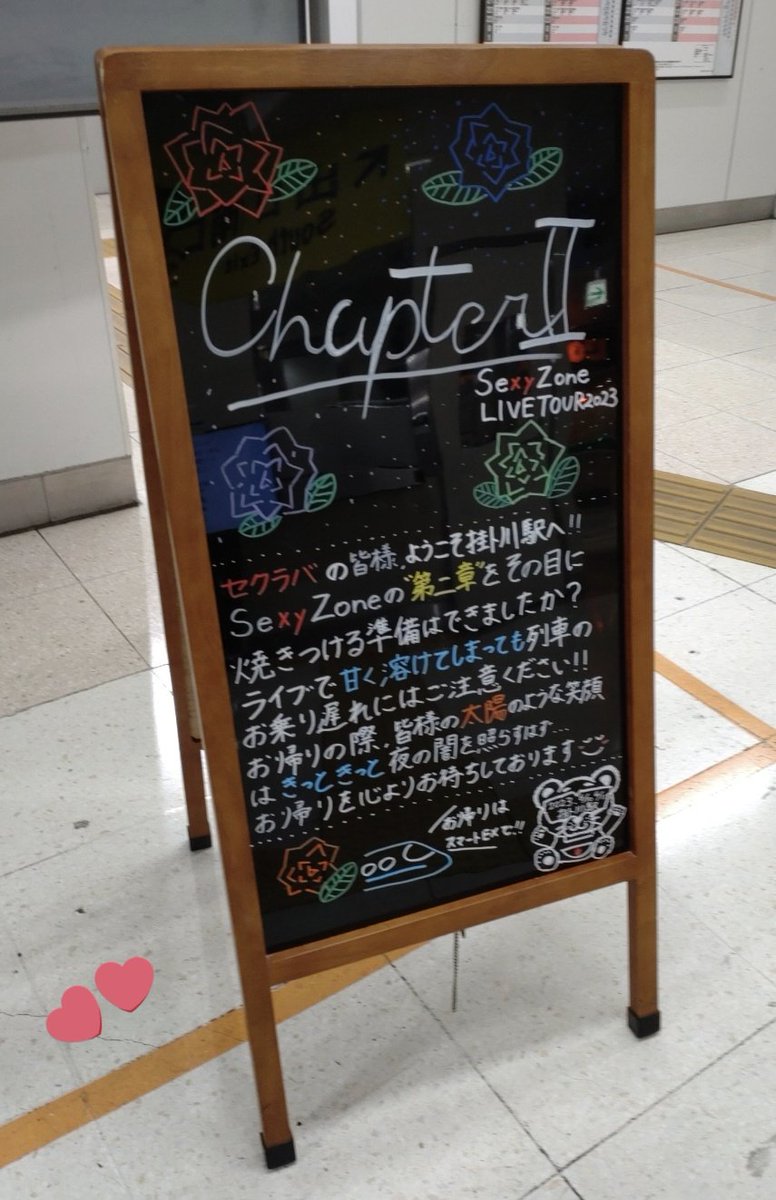 Chapter II
Sexy Zone
LIVE TOUR 2023
セクラバの皆様、ようこそ掛川駅へ!!
Sexy Zoneの"第二章"をその目に
焼きつける準備はできましたか?
ライブで甘く溶けてしまっても列車の
お乗り遅れにはご注意ください!!
お帰りの際、皆様の太陽のような笑顔
はきっときっと夜の闇を照らすはず…
お帰りを心よりお待ちしております
お帰りは
スマートEXで!!